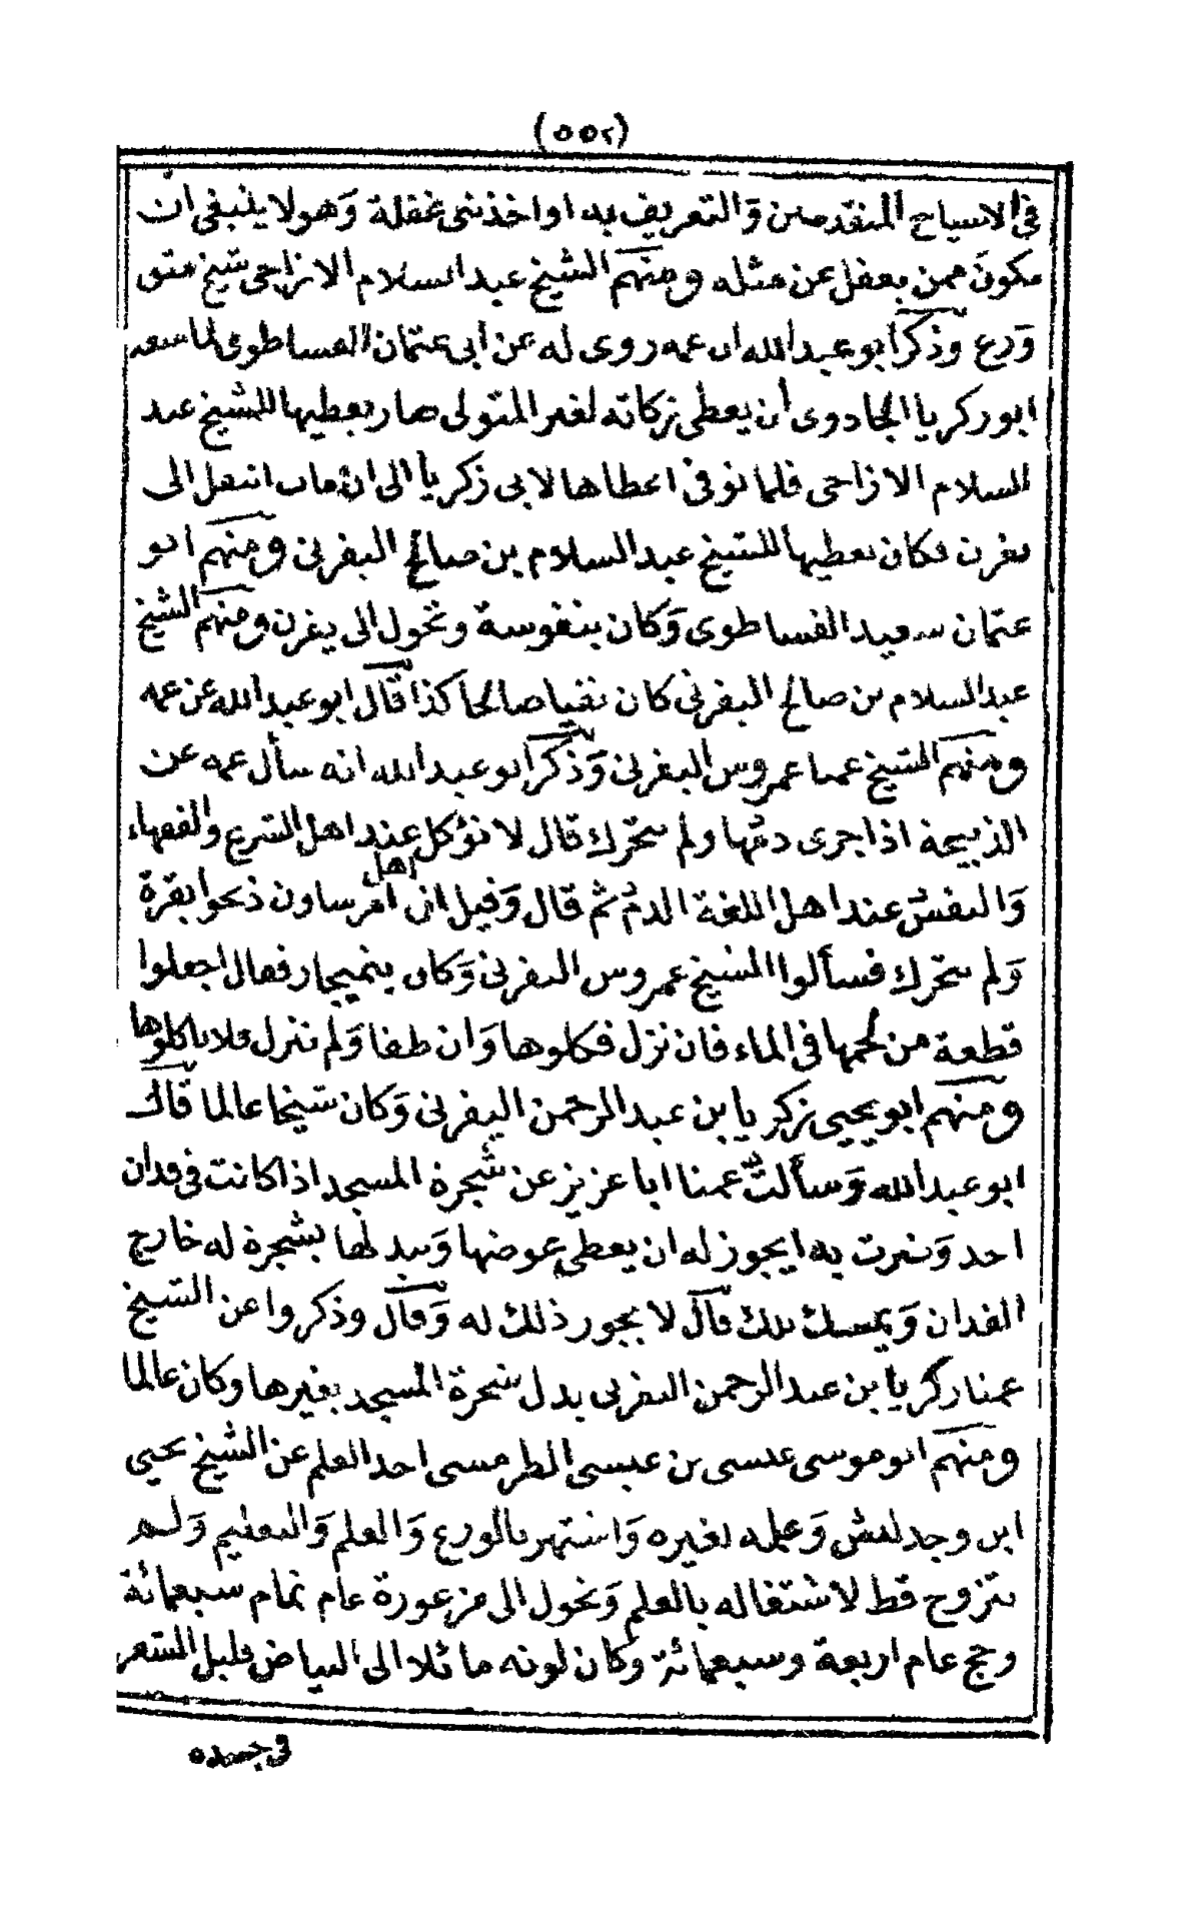 (٥٥٢)
في الاشياخ المتقدمين وَالتعريف به او اخذتنى غفلة وَهو لا ينبغى ان
يكونَ ممن يغفل عن مثله ومنهم الشيخ عبد السلام الازاجى شيخ متق
وَرع وذكر ابو عبد الله ان عمه روى له عن ابى عثمان الفساطوى لما منعه
ابو زكريا الجادوى أن يعطى زكاته لغير المتولى صار يعطيها للشيخ عبد
السلام الازاجى فلما توفى اعطاها لابى زكريا الى ان مات انتقل الى
يفرن فكان يعطيها للشيخ عبد السلام بن صالح اليفرنى ومنهم ابو
عثمان سعيد الفساطوى وَكان بنفوسة وتحول الى يفرن ومنهم الشيخ
عبد السلام بن صالح اليفرنى كان تقيا صالحا كذا قال ابو عبد الله عن عمه
ومنهم الشيخ عمنا عمروس اليفرنى وَذكر ابو عبد الله انه سأل عمه عن
الذبيحة اذا جرى دمُها ولم تتحرك قال لا تؤكل عند اهل الشرع والفقهاء
وَالنفسُ عند اهل اللغة الدمُ ثم قال وَقيل ان اهل امرساون ذبحوا بقرة
وَلم تتحرك فسألوا الشيخ عمروس اليفرنى وَكان بتميجار فقال اجعلوا
قطعة من لحمها فى الماء فان نزل فكلوها وَان طفا وَلم تنزل فلا تاكلوها
ومنهم ابو يحيى زكريا بن عبد الرحمن اليفرنى وَكان شيخا عالما قال
ابو عبد الله وَسألتُ عمنا ابا عزيز عن شجرة المسجد اذا كانت فى فدان
احد وَضرت به ايجوز له ان يعطى عوضها وَيبدلها بشجرة له خارج
الفدان وَيمسك تلك قال لا يجوز ذلك له وَقال وذكروا عن الشيخ
عمنا زكريا بن عبد الرحمن اليفرنى بدل شجرة المسجد بغيرها وكان عالما
ومنهم ابو موسى عيسى بن عيسى الطرميسى اخذ العلم عن الشيخ يحيى
ابن وجدليش وَعلمه لغيره وَاشتهر بالورع وَالعلم وَالتعليم وَلم
يتزوج قط لاشتغاله بالعلم وَتحول الى مزغورة عام تمام سبعمائة
وحج عام اربعة وسبعمائة وكان لونه مائلا الى البياض قليل الشعر
فى جسده